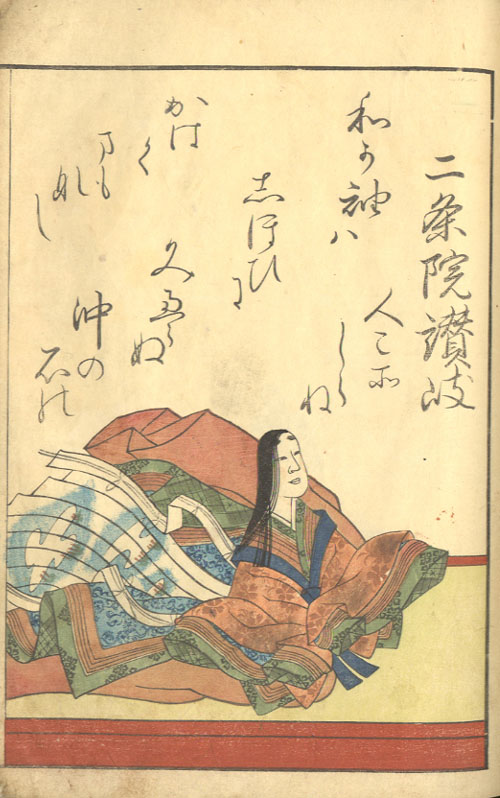 二条院讃岐
わか袖ハ
しほひに
みえぬ
沖の
石の
人こそ
しらね
かはく
まも
なし